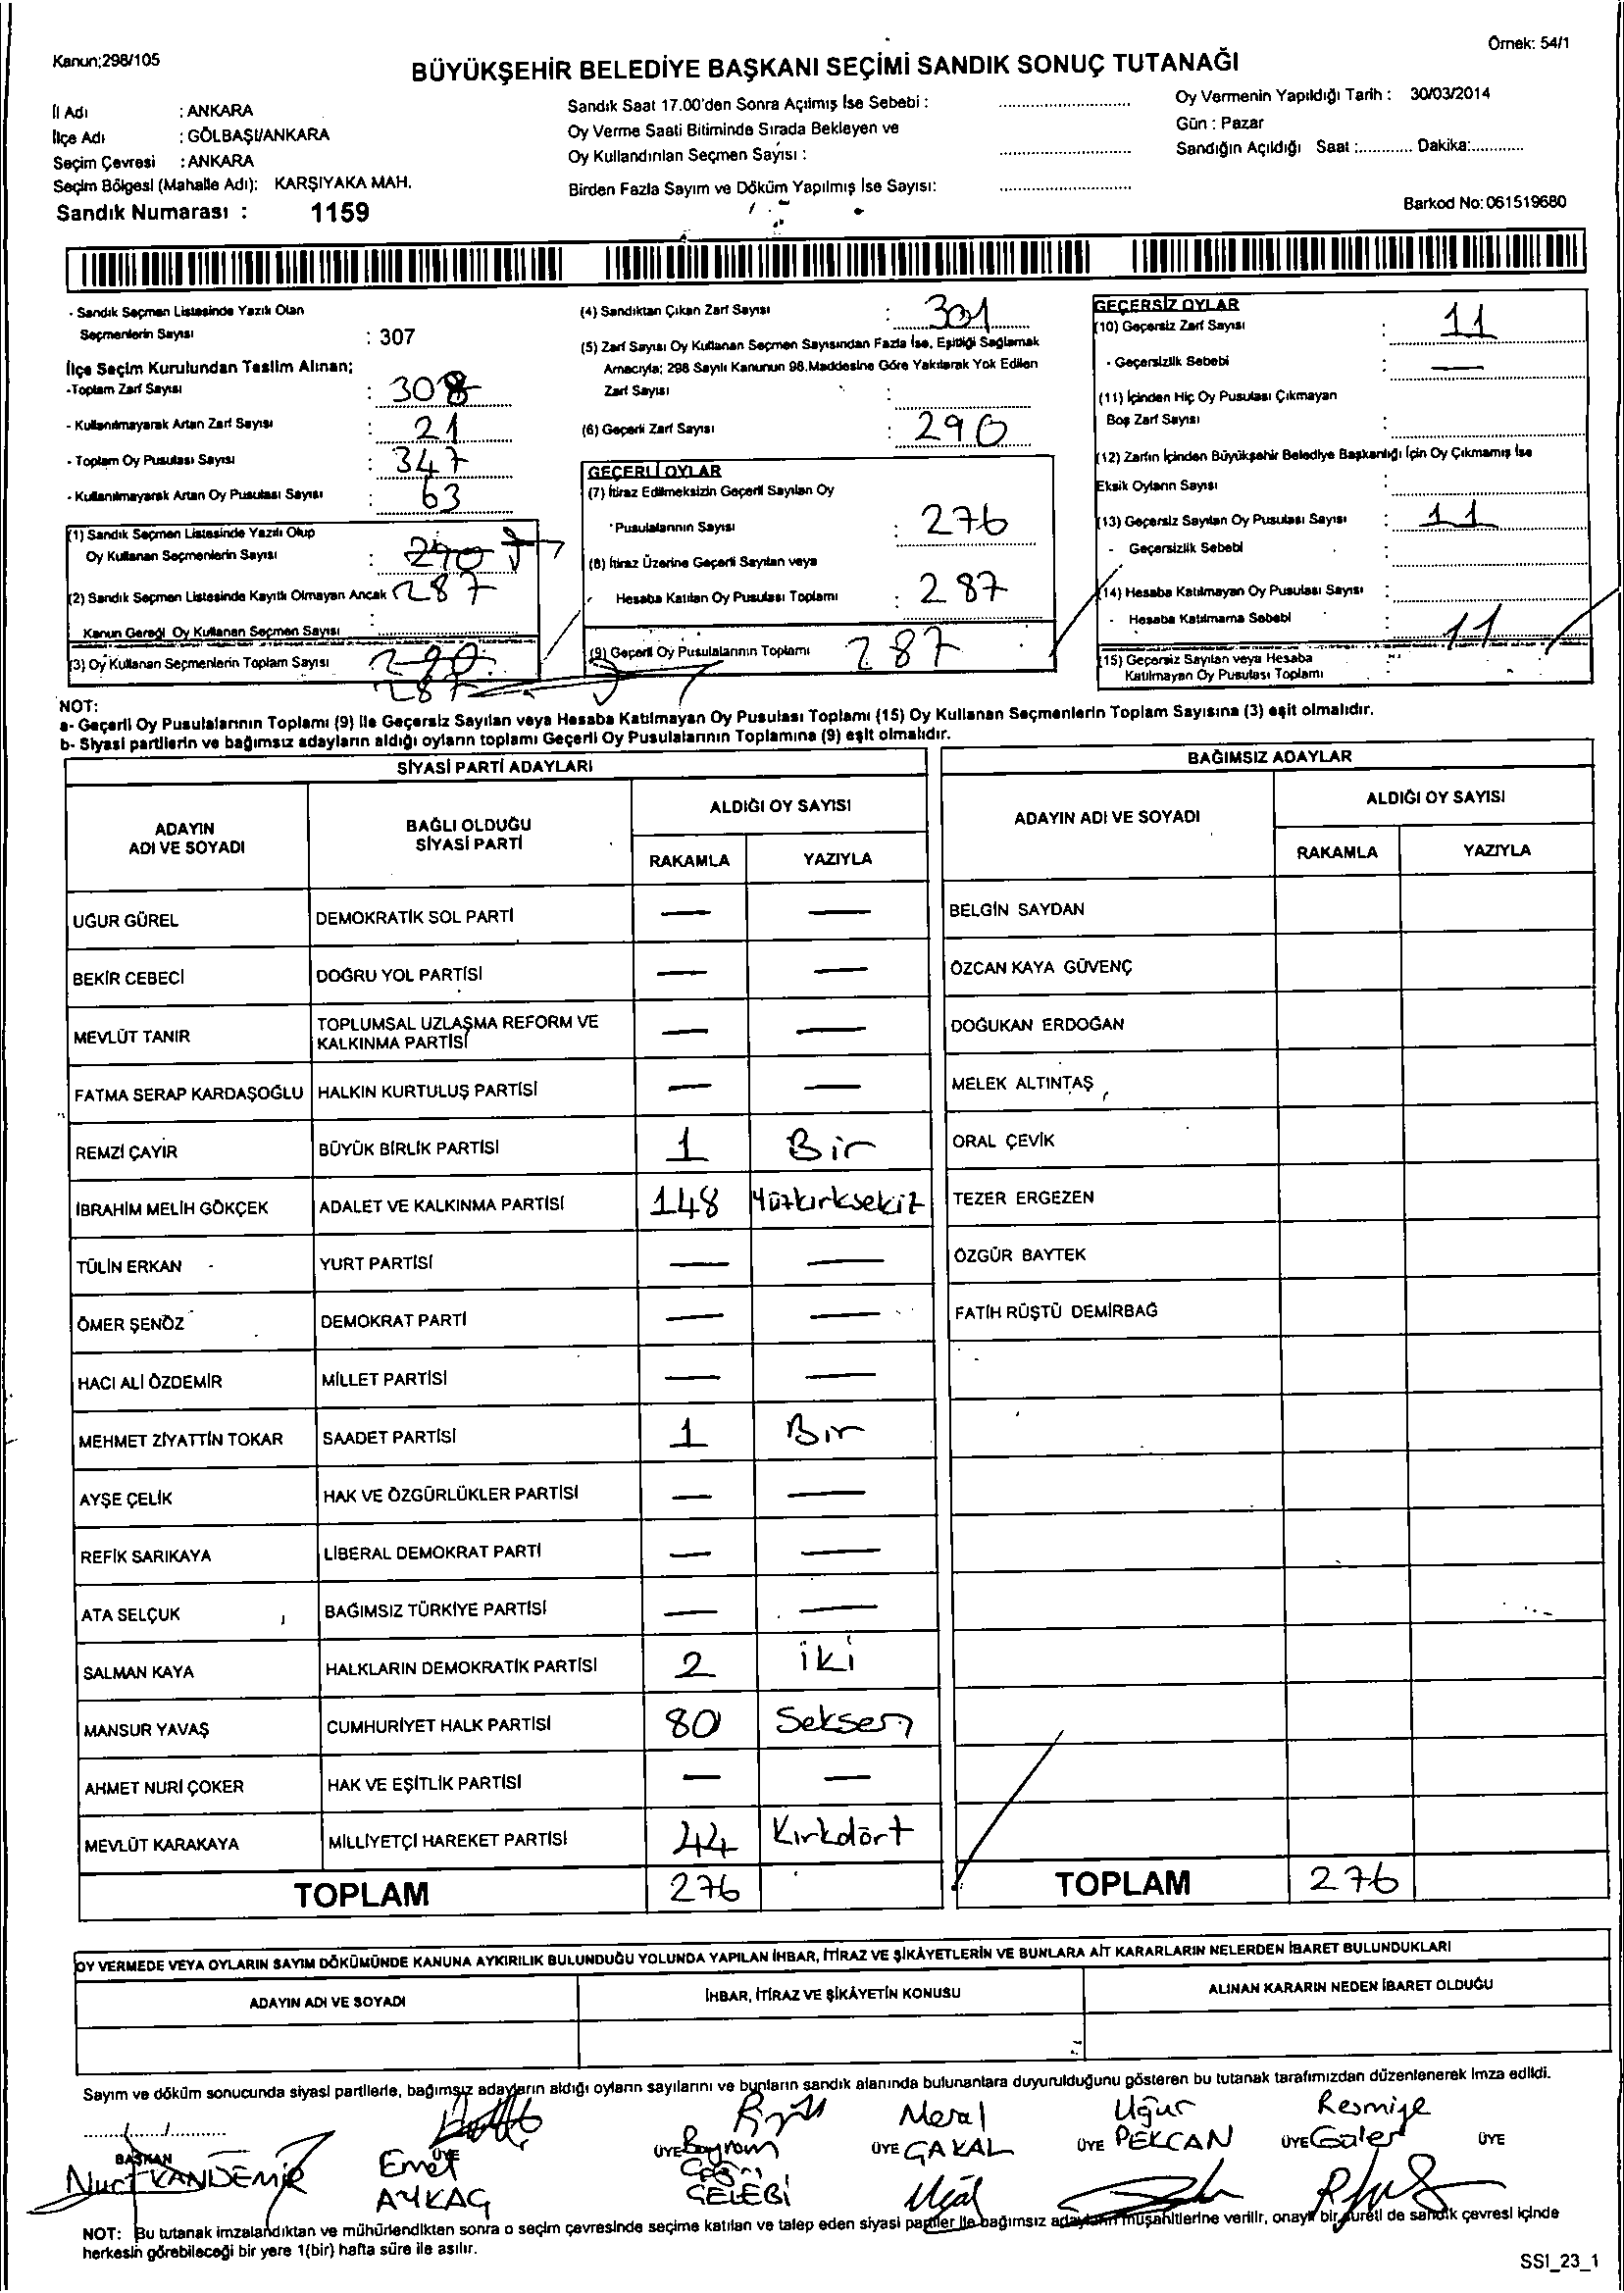 Kanun;298/105
Örnek: 54/1
BÜYÜKŞEHİR BELEDİYE BAŞKANI SEÇİMİ SANDIK SONUÇ TUTANAĞI
İl Adı : ANKARA
İlçe Adı : GÖLBAŞI/ANKARA
Seçim Çevresi : ANKARA
Seçim Bölgesi (Mahalle Adı): KARŞIYAKA MAH.
Sandık Numarası : 1159
Sandık Saat 17.00'den Sonra Açılmış İse Sebebi :
Oy Verme Saati Bitiminde Sırada Bekleyen ve
Oy Kullandırılan Seçmen Sayısı :
Birden Fazla Sayım ve Döküm Yapılmış İse Sayısı:
Oy Vermenin Yapıldığı Tarih : 30/03/2014
Gün : Pazar
Sandığın Açıldığı Saat :............ Dakika:............
Barkod No: 061519680
- Sandık Seçmen Listesinde Yazılı Olan
Seçmenlerin Sayısı : 307
İlçe Seçim Kurulundan Teslim Alınan;
-Toplam Zarf Sayısı : 308
- Kullanılmayarak Artan Zarf Sayısı : 21
- Toplam Oy Pusulası Sayısı : 347
- Kullanılmayarak Artan Oy Pusulası Sayısı : 63
(1) Sandık Seçmen Listesinde Yazılı Olup
Oy Kullanan Seçmenlerin Sayısı : 290
(2) Sandık Seçmen Listesinde Kayıtlı Olmayan Ancak 287
Kanun Gereği Oy Kullanan Seçmen Sayısı :
(3) Oy Kullanan Seçmenlerin Toplam Sayısı 290
287
(4) Sandıktan Çıkan Zarf Sayısı : 301
(5) Zarf Sayısı Oy Kullanan Seçmen Sayısından Fazla İse, Eşitliği Sağlamak
Amacıyla; 298 Sayılı Kanunun 98.Maddesine Göre Yakılarak Yok Edilen
Zarf Sayısı :
(6) Geçerli Zarf Sayısı : 290
GEÇERLİ OYLAR
(7) İtiraz Edilmeksizin Geçerli Sayılan Oy
Pusulalarının Sayısı : 276
(8) İtiraz Üzerine Geçerli Sayılan veya
Hesaba Katılan Oy Pusulası Toplamı : 287
(9) Geçerli Oy Pusulalarının Toplamı 287
GEÇERSİZ OYLAR
(10) Geçersiz Zarf Sayısı : 11
- Geçersizlik Sebebi : —
(11) İçinden Hiç Oy Pusulası Çıkmayan
Boş Zarf Sayısı :
(12) Zarfın İçinden Büyükşehir Belediye Başkanlığı İçin Oy Çıkmamış İse
Eksik Oyların Sayısı :
(13) Geçersiz Sayılan Oy Pusulası Sayısı : 11
- Geçersizlik Sebebi :
(14) Hesaba Katılmayan Oy Pusulası Sayısı :
- Hesaba Katılmama Sebebi :
(15) Geçersiz Sayılan veya Hesaba 11
Katılmayan Oy Pusulası Toplamı
NOT:
a- Geçerli Oy Pusulalarının Toplamı (9) ile Geçersiz Sayılan veya Hesaba Katılmayan Oy Pusulası Toplamı (15) Oy Kullanan Seçmenlerin Toplam Sayısına (3) eşit olmalıdır.
b- Siyasi partilerin ve bağımsız adayların aldığı oyların toplamı Geçerli Oy Pusulalarının Toplamına (9) eşit olmalıdır.
SİYASİ PARTİ ADAYLARI
ADAYIN
ADI VE SOYADI
BAĞLI OLDUĞU
SİYASİ PARTİ
ALDIĞI OY SAYISI
RAKAMLA YAZIYLA
UĞUR GÜREL DEMOKRATİK SOL PARTİ — —
BEKİR CEBECİ DOĞRU YOL PARTİSİ — —
MEVLÜT TANIR TOPLUMSAL UZLAŞMA REFORM VE
KALKINMA PARTİSİ — —
FATMA SERAP KARDAŞOĞLU HALKIN KURTULUŞ PARTİSİ — —
REMZİ ÇAYIR BÜYÜK BİRLİK PARTİSİ 1 Bir
İBRAHİM MELİH GÖKÇEK ADALET VE KALKINMA PARTİSİ 148 Yüzkırksekiz
TÜLİN ERKAN YURT PARTİSİ — —
ÖMER ŞENÖZ DEMOKRAT PARTİ — —
HACI ALİ ÖZDEMİR MİLLET PARTİSİ — —
MEHMET ZİYATTİN TOKAR SAADET PARTİSİ 1 Bir
AYŞE ÇELİK HAK VE ÖZGÜRLÜKLER PARTİSİ — —
REFİK SARIKAYA LİBERAL DEMOKRAT PARTİ — —
ATA SELÇUK BAĞIMSIZ TÜRKİYE PARTİSİ — —
SALMAN KAYA HALKLARIN DEMOKRATİK PARTİSİ 2 iki
MANSUR YAVAŞ CUMHURİYET HALK PARTİSİ 80 Seksen
AHMET NURİ ÇOKER HAK VE EŞİTLİK PARTİSİ — —
MEVLÜT KARAKAYA MİLLİYETÇİ HAREKET PARTİSİ 44 Kırkdört
TOPLAM 276
BAĞIMSIZ ADAYLAR
ADAYIN ADI VE SOYADI
ALDIĞI OY SAYISI
RAKAMLA YAZIYLA
BELGİN SAYDAN
ÖZCAN KAYA GÜVENÇ
DOĞUKAN ERDOĞAN
MELEK ALTINTAŞ
ORAL ÇEVİK
TEZER ERGEZEN
ÖZGÜR BAYTEK
FATİH RÜŞTÜ DEMİRBAĞ
TOPLAM 276
OY VERMEDE VEYA OYLARIN SAYIM DÖKÜMÜNDE KANUNA AYKIRILIK BULUNDUĞU YOLUNDA YAPILAN İHBAR, İTİRAZ VE ŞİKÂYETLERİN VE BUNLARA AİT KARARLARIN NELERDEN İBARET BULUNDUKLARI
ADAYIN ADI VE SOYADI
İHBAR, İTİRAZ VE ŞİKÂYETİN KONUSU
ALINAN KARARIN NEDEN İBARET OLDUĞU
Sayım ve döküm sonucunda siyasi partilerle, bağımsız adayların aldığı oyların sayılarını ve bunların sandık alanında bulunanlara duyurulduğunu gösteren bu tutanak tarafımızdan düzenlenerek imza edildi.
BAŞKAN
Nuri KANDEMİR
ÜYE
Emel
AYKAÇ
ÜYE Bayram
ÇELEBİ
Meral
ÜYE GAKAL
Uğur
ÜYE PEKCAN
Resmiye
ÜYE Güler
ÜYE
NOT: Bu tutanak imzalandıktan ve mühürlendikten sonra o seçim çevresinde seçime katılan ve talep eden siyasi partiler ile bağımsız adayların müşahitlerine verilir, onaylı bir sureti de sandık çevresi içinde
herkesin görebileceği bir yere 1(bir) hafta süre ile asılır.
SSI_23_1